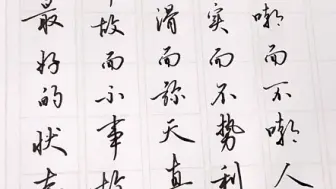 嘲而不嘲人
实而不势利
滑而弥天真
故而不事故
最好的状态